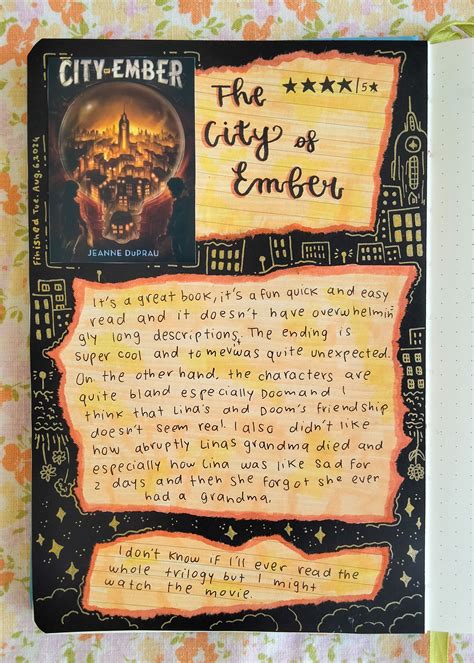 CITY OF EMBER
JEANNE DUPRAU
Finished Tue. Aug. 6. 2024
★★★★|5★
The
City of
Ember
It's a great book, it's a fun quick and easy
read and it doesn't have overwhelmin
gly long descriptions. The ending is
super cool and to me it was quite unexpected.
On the other hand, the characters are
quite bland especially Doom and I
think that Lina's and Doom's friendship
doesn't seem real. I also didn't like
how abruptly Lina's grandma died and
especially how Lina was like sad for
2 days and then she forgot she ever
had a grandma.
I don't know if I'll ever read the
whole trilogy but I might
watch the movie.